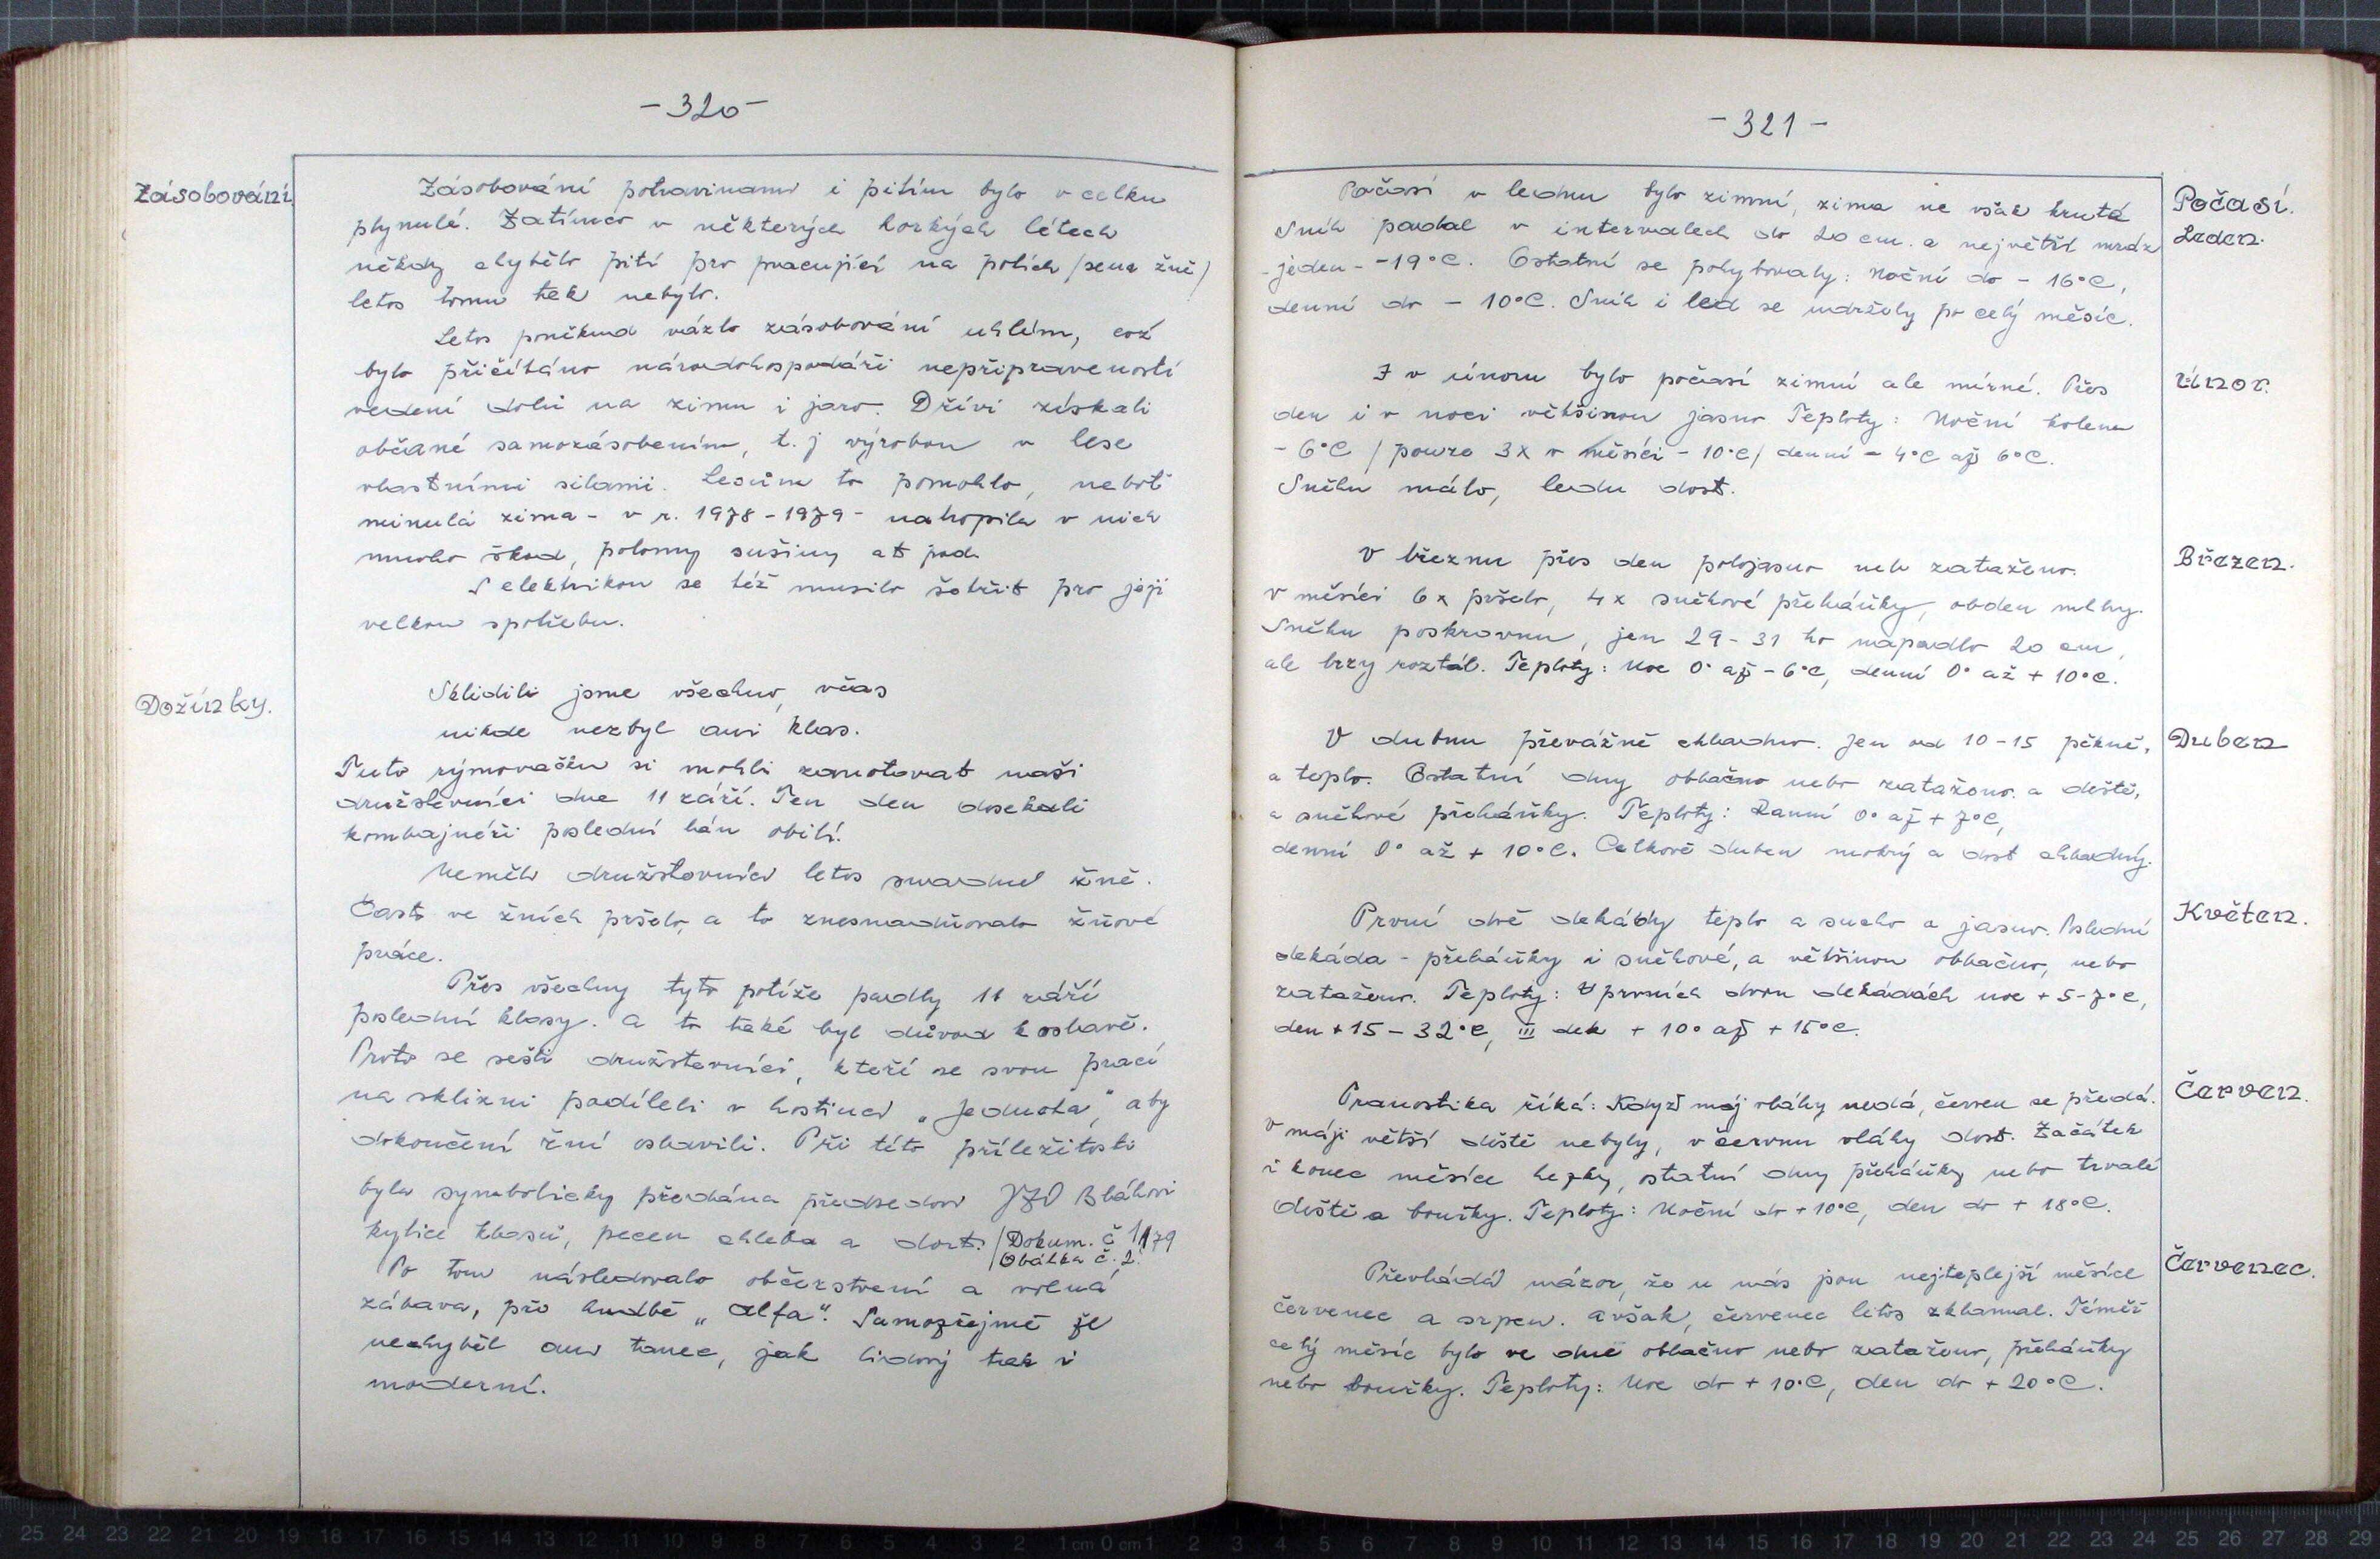 - 320 -
Zásobování.
Zásobování potravinami i pitím bylo v celku
plynulé. Zatímco v některých horkých létech
někdy chybělo pití pro pracující na polích /sena žně/
letos tomu tak nebylo.
Letos poněkud vázlo zásobování uhlím, což
bylo přičítáno národohospodáři nepřipraveností
vedení dolů na zimu i jaro. Dříví získali
občané samozásobením, t. j výrobou v lese
vlastními silami. Lesům to pomohlo, neboť
minulá zima - v r. 1978 - 1979 - nahopila v nich
mnoho škod, polomy sušiny at pod.
S elektrikou se též musilo šetřit pro její
velkou spotřebu.
Dožínky.
Sklidili jsme všechno, včas
nikde nezbyl ani klas.
Tuto rýmovačku si mohli zanotovat naši
družstevníci dne 11 září. Ten den dosekali
kombajnéři poslední lán obilí.
Neměli družstevníci letos snadné žně.
Často ve žních pršelo, a to znesnadňovalo žňové
práce.
Přes všechny tyto potíže padly 11 září
poslední klasy. a to také byl důvod k oslavě.
Proto se sešli družstevníci, kteří se svou prací
na sklizni podíleli v hostinci "Jednota", aby
dokončení žní oslavili. Při této příležitosti
byla symbolicky předána předsedovi JZD Bláhovi
kytice klasů, pecen chleba a dort. /Dokum. č 1/79
Obálka č. 2.
Po tom následovalo občerstvení a volná
zábava, při hudbě "Alfa". Samozřejmě že
nechyběl ani tanec, jak lidový tak i
moderní.
- 321 -
Počasí.
Leden.
Počasí v lednu bylo zimní, zima ne však krutá
Sníh padal v intervalech do 20 cm. a největší mráz
- jeden - -19°C. Ostatní se pohybovaly: Noční do - 16°C,
denní do - 10°C. Sníh i led se udržely po celý měsíc.
Únor.
I v únoru bylo počasí zimní ale mírné. Přes
den i v noci většinou jasno Teploty: Noční kolem
- 6°C / pouze 3x v měsíci - 10°C/ denní - 4°C až 6°C.
Sněhu málo, ledu dost.
Březen.
V březnu přes den polojasno neb zataženo.
v měsíci 6x pršelo, 4x sněhové přeháňky, obden mlhy.
Sněhu poskrovnu, jen 29 - 31 ho napadlo 20 cm,
ale brzy roztál. Teploty: Noc 0° až - 6°C, denní 0° až + 10°C.
Duben
V dubnu převážně chladno. Jen od 10 - 15 pěkně,
a teplo. Ostatní dny oblačno nebo zataženo. a deště,
a sněhové přeháňky. Teploty: Ranní 0° až + 7°C,
denní 0° až + 10°C. Celkově duben mokrý a dost chladný.
Květen.
První dvě dekády teplo a sucho a jasno. Poslední
dekáda - přeháňky i sněhové, a většinou oblačno, nebo
zataženo. Teploty: V prvních dvou dekádách noc + 5 - 7°C,
den + 15 - 32°C, III dek + 10° až + 15°C.
Červen.
Pranostika říká: Když máj vláhy nedá, červen se předá.
V máji větší deště nebyly, v červnu vláhy dost. Začátek
i konec měsíce hezky, ostatní dny přeháňky nebo trvalé
deště a bouřky. Teploty: Noční do + 10°C, den do + 18°C.
Červenec.
Převládá názor, že u nás jsou nejteplejší měsíce
červenec a srpen. avšak, červenec letos zklamal. Téměř
celý měsíc bylo ve dne oblačno nebo zataženo, přeháňky
nebo bouřky. Teploty: Noc do + 10°C, den do + 20°C.